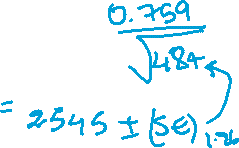 0.759
√484
= 2545 ± (SE) 1.96